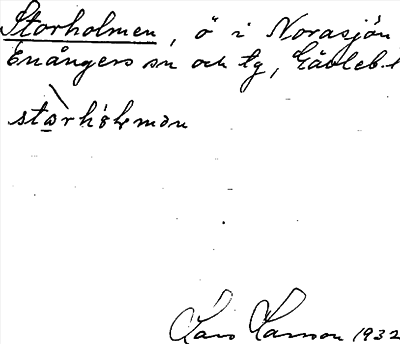 Storholmen, ö i Norasjön
Enångers sn och tg, Gävleb. l
storholmən
Lars Larsson 1932